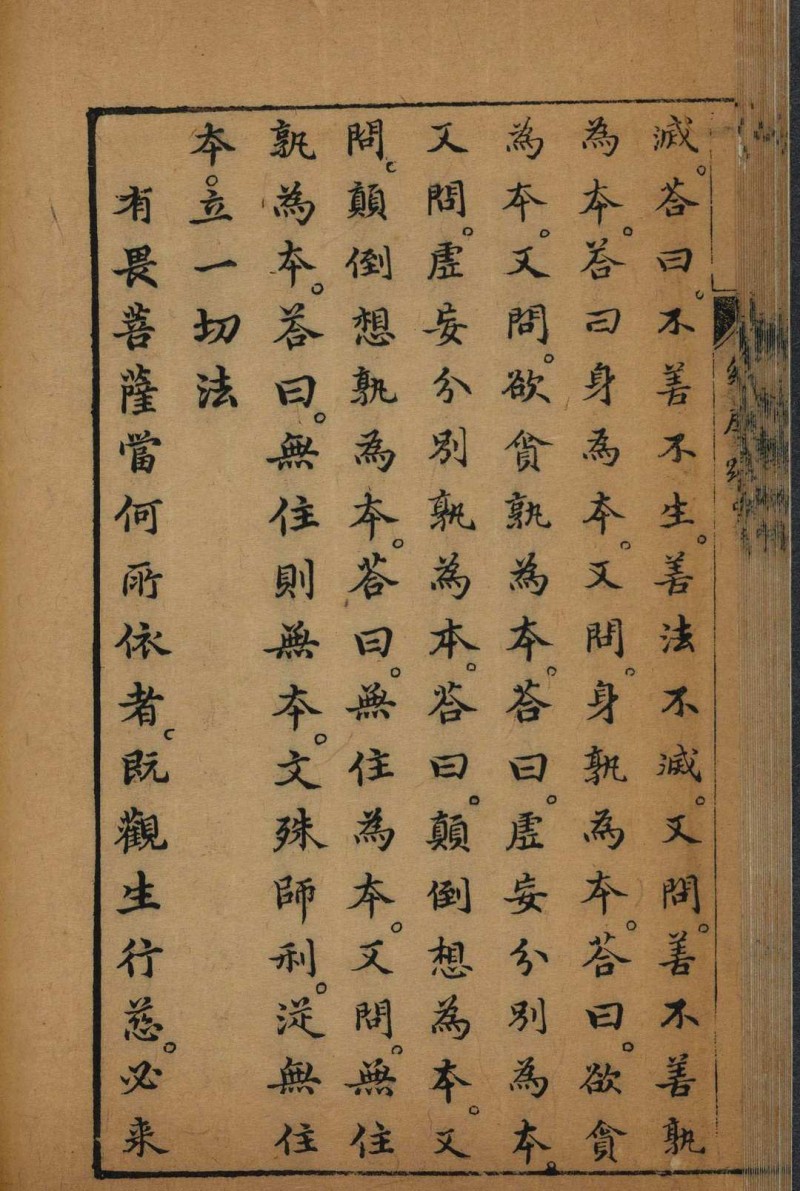 滅。荅曰。不善不生。善法不滅。又問。善不善孰
為本。荅曰身為本。又問。身孰為本。荅曰。欲貪
為本。又問。欲貪孰為本。荅曰。虛妄分別為本。
又問。虛妄分別孰為本。荅曰。顛倒想為本。又
問。顛倒想孰為本。荅曰。無住為本。又問。無住
孰為本。荅曰。無住則無本。文殊師利。從無住
本。立一切法
有畏菩薩當何所依者。既觀生行慈。必来